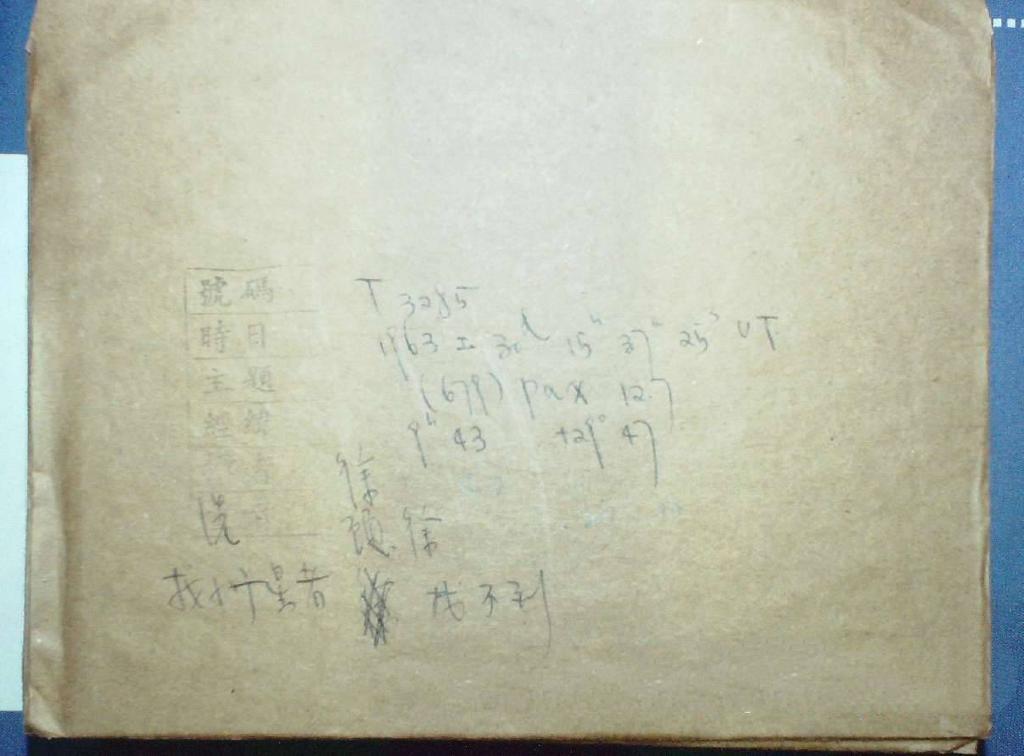 號碼 T 3285
時日 1963 I 30ᵈ 15ʰ 37ᵐ 25ˢ UT
主題 (679) pax 12.7
經緯 9ʰ 43 +29° 47
徐
洗 徐
找小行星者 找不到